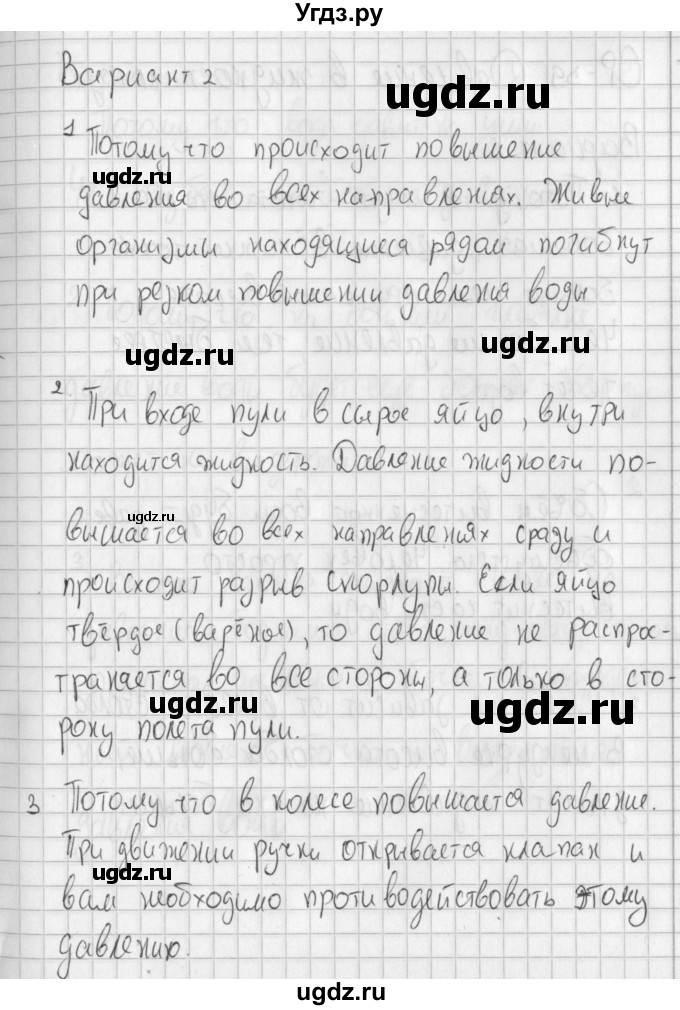 Угдз.ру
Вариант 2
ugdz.ru
1 Потому что происходит повышение
ugdz.ru
давления во всех направлениях. Живые
организмы находящиеся рядом погибнут
при резком повышении давления воды
ugdz.ru
ugdz.ru
2. При входе пули в сырое яйцо, внутри
находится жидкость. Давление жидкости по-
ugdz.ru
вышается во всех направлениях сразу и
происходит разрыв скорлупы. Если яйцо
твёрдое (варёное), то давление не распрос-
траняется во все стороны, а только в сто-
ugdz.ru
ugdz.ru
рону полета пули.
3 Потому что в колесе повышается давление.
При движении ручки открывается клапан и
ugdz.ru
вам необходимо противодействовать этому
давлению.
ugdz.ru